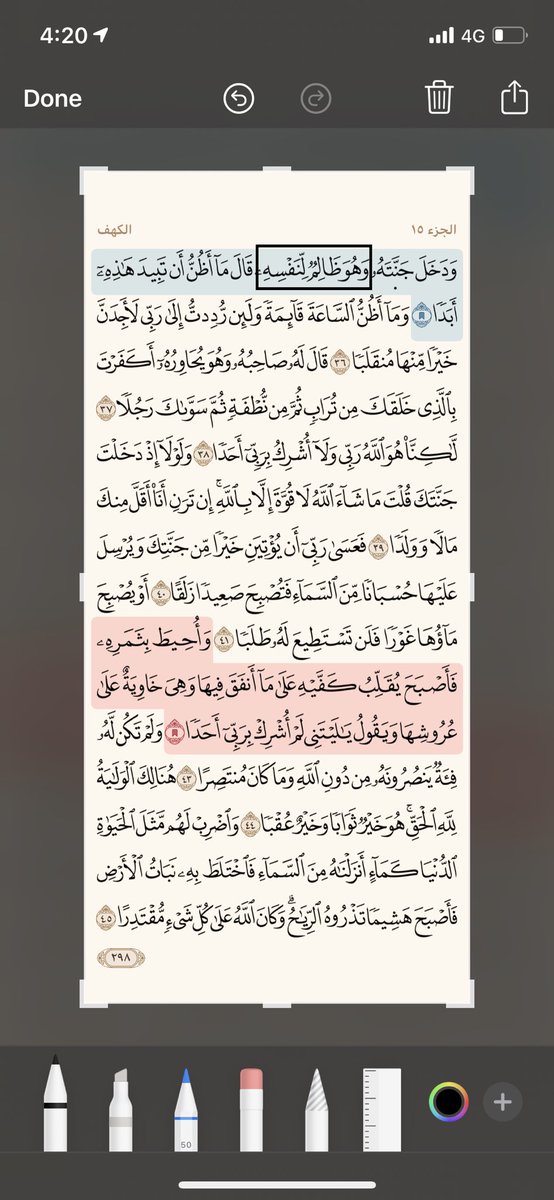 4:20
4G
Done
الجزء ١٥
الكهف
وَدَخَلَ جَنَّتَهُۥ وَهُوَ ظَالِمٌ لِّنَفْسِهِۦ قَالَ مَآ أَظُنُّ أَن تَبِيدَ هَٰذِهِۦٓ
أَبَدًا وَمَآ أَظُنُّ ٱلسَّاعَةَ قَآئِمَةً وَلَئِن رُّدِدتُّ إِلَىٰ رَبِّى لَأَجِدَنَّ
خَيْرًا مِّنْهَا مُنقَلَبًا ٣٦ قَالَ لَهُۥ صَاحِبُهُۥ وَهُوَ يُحَاوِرُهُۥٓ أَكَفَرْتَ
بِٱلَّذِى خَلَقَكَ مِن تُرَابٍ ثُمَّ مِن نُّطْفَةٍ ثُمَّ سَوَّىٰكَ رَجُلًا ٣٧
لَّٰكِنَّا۠ هُوَ ٱللَّهُ رَبِّى وَلَآ أُشْرِكُ بِرَبِّىٓ أَحَدًا ٣٨ وَلَوْلَآ إِذْ دَخَلْتَ
جَنَّتَكَ قُلْتَ مَا شَآءَ ٱللَّهُ لَا قُوَّةَ إِلَّا بِٱللَّهِ ۚ إِن تَرَنِ أَنَا۠ أَقَلَّ مِنكَ
مَالًا وَوَلَدًا ٣٩ فَعَسَىٰ رَبِّىٓ أَن يُؤْتِيَنِ خَيْرًا مِّن جَنَّتِكَ وَيُرْسِلَ
عَلَيْهَا حُسْبَانًا مِّنَ ٱلسَّمَآءِ فَتُصْبِحَ صَعِيدًا زَلَقًا ٤٠ أَوْ يُصْبِحَ
مَآؤُهَا غَوْرًا فَلَن تَسْتَطِيعَ لَهُۥ طَلَبًا ٤١ وَأُحِيطَ بِثَمَرِهِۦ
فَأَصْبَحَ يُقَلِّبُ كَفَّيْهِ عَلَىٰ مَآ أَنفَقَ فِيهَا وَهِىَ خَاوِيَةٌ عَلَىٰ
عُرُوشِهَا وَيَقُولُ يَٰلَيْتَنِى لَمْ أُشْرِكْ بِرَبِّىٓ أَحَدًا وَلَمْ تَكُن لَّهُۥ
فِئَةٌ يَنصُرُونَهُۥ مِن دُونِ ٱللَّهِ وَمَا كَانَ مُنتَصِرًا ٤٣ هُنَالِكَ ٱلْوَلَٰيَةُ
لِلَّهِ ٱلْحَقِّ ۚ هُوَ خَيْرٌ ثَوَابًا وَخَيْرٌ عُقْبًا ٤٤ وَٱضْرِبْ لَهُم مَّثَلَ ٱلْحَيَوٰةِ
ٱلدُّنْيَا كَمَآءٍ أَنزَلْنَٰهُ مِنَ ٱلسَّمَآءِ فَٱخْتَلَطَ بِهِۦ نَبَاتُ ٱلْأَرْضِ
فَأَصْبَحَ هَشِيمًا تَذْرُوهُ ٱلرِّيَٰحُ ۗ وَكَانَ ٱللَّهُ عَلَىٰ كُلِّ شَىْءٍ مُّقْتَدِرًا ٤٥
٢٩٨
50